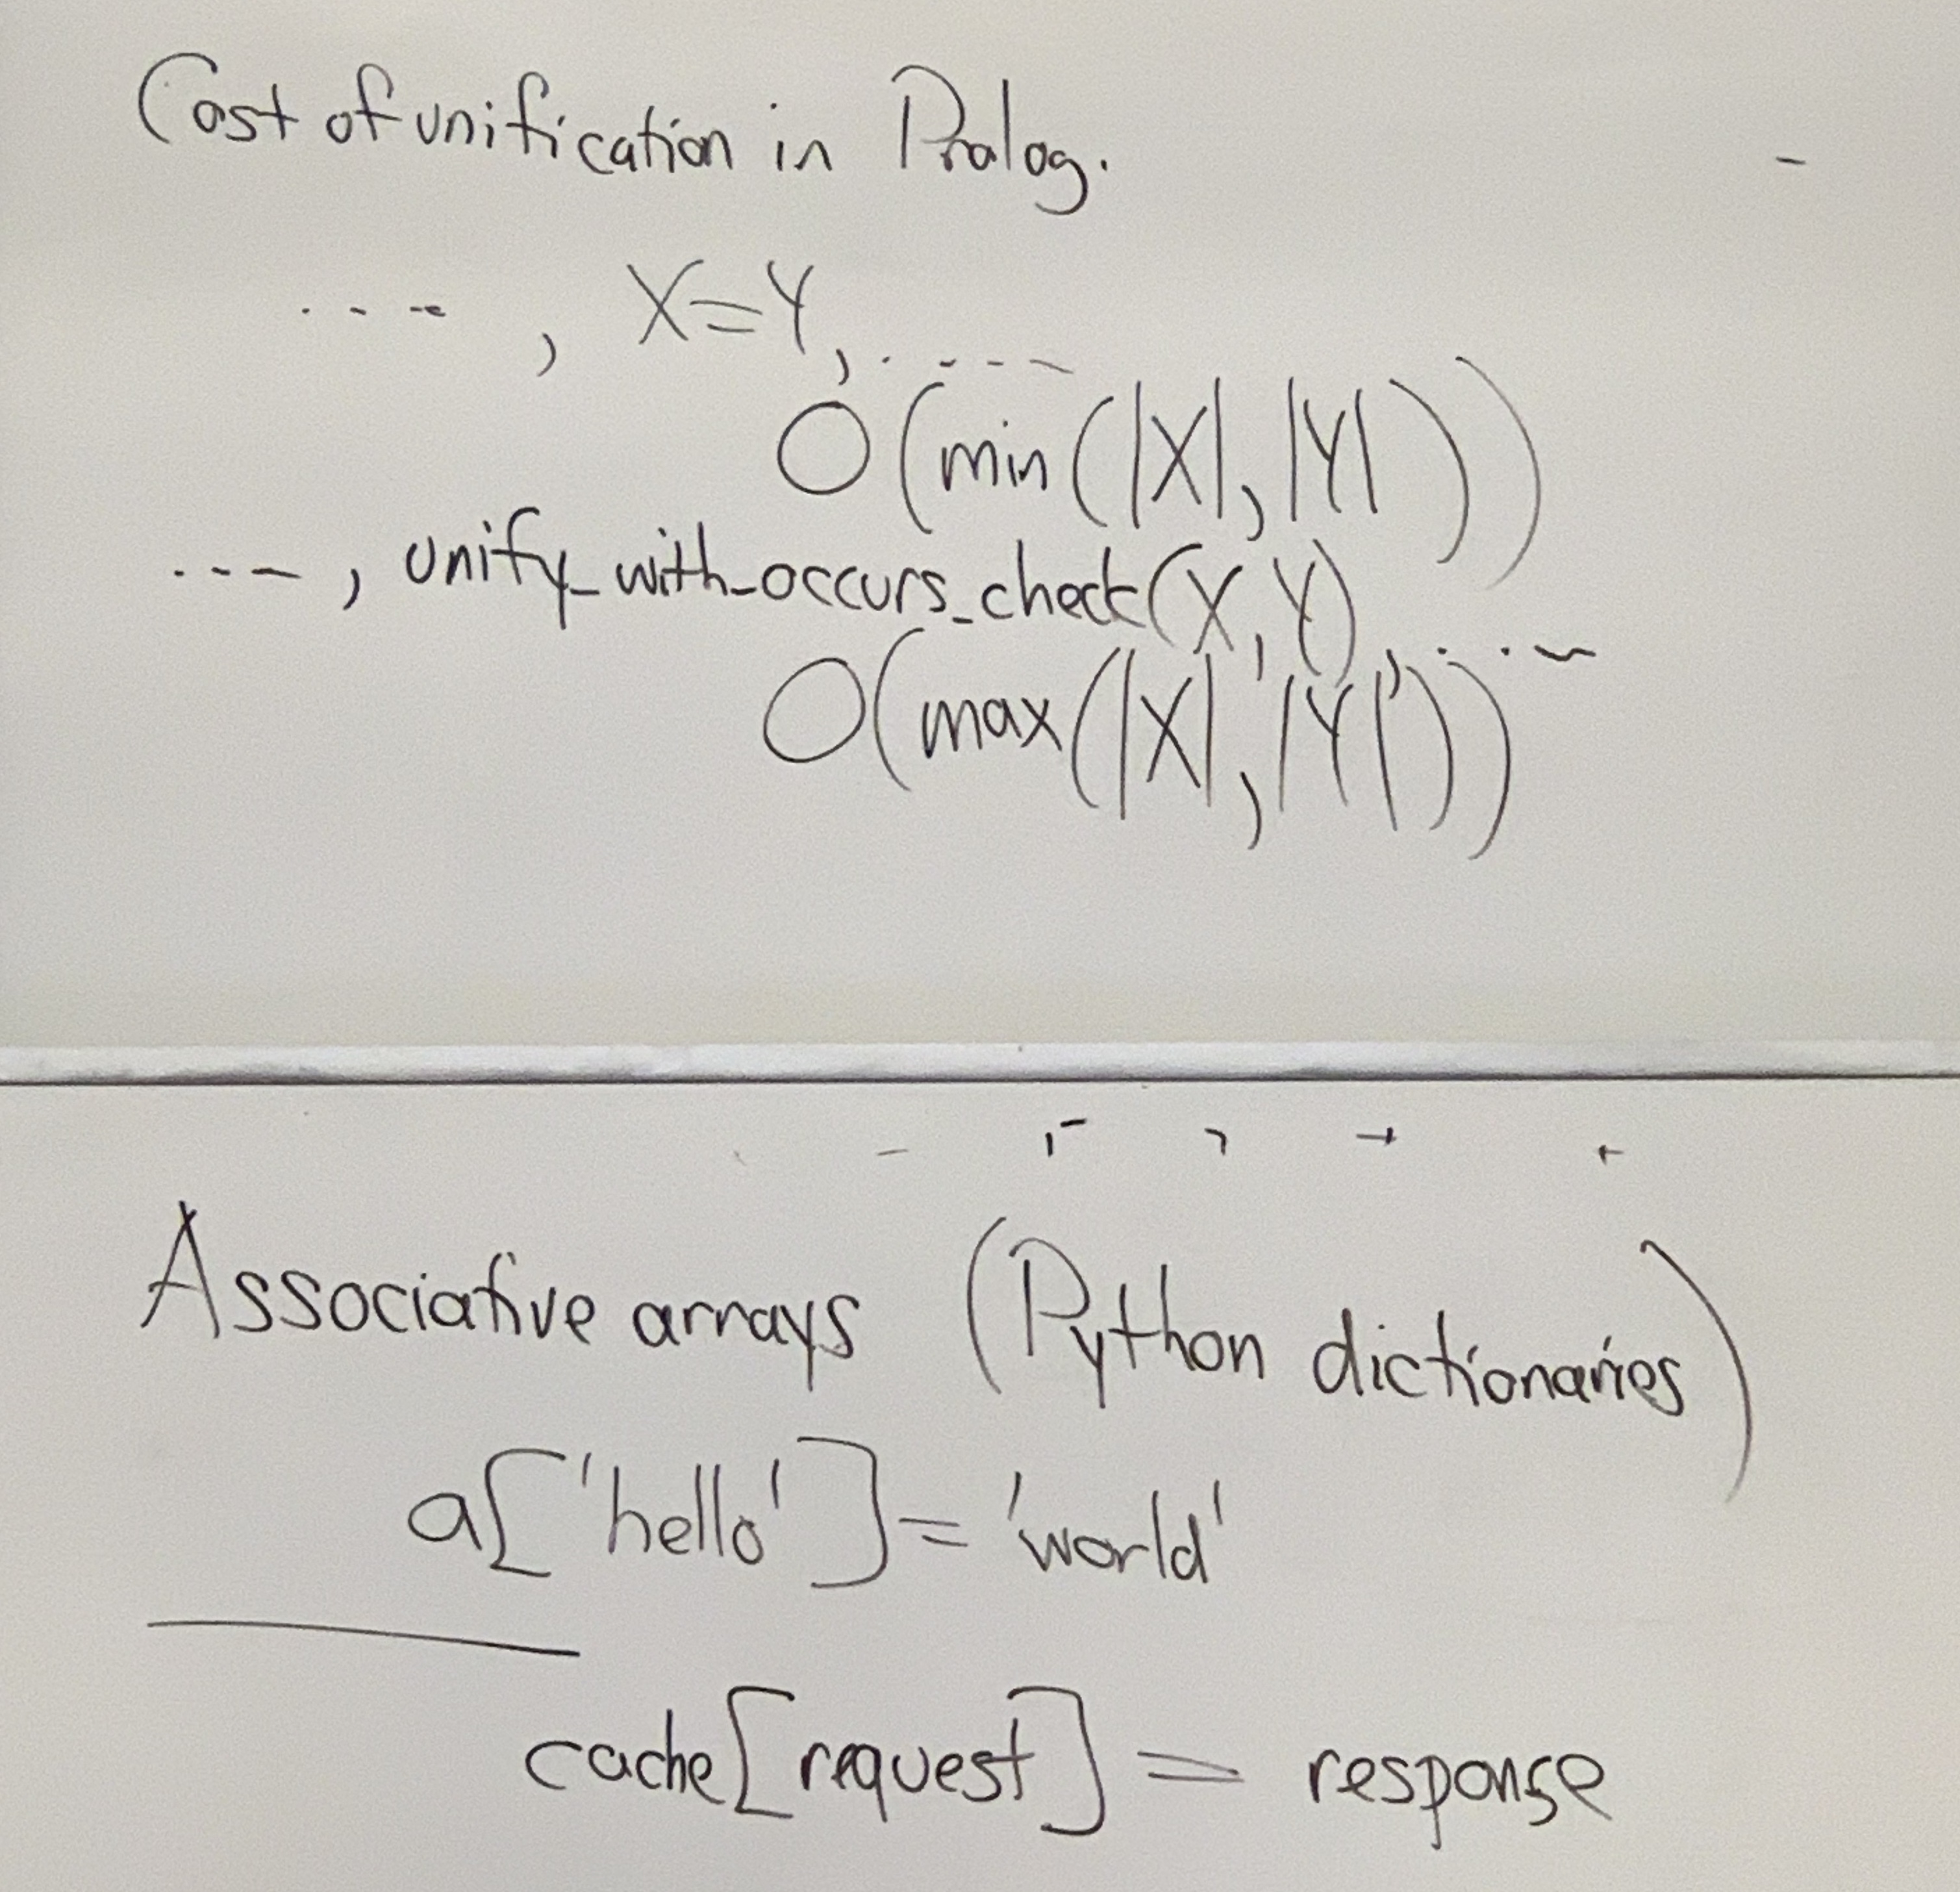 Cost of unification in Prolog.
...., X=Y, ....
O(min(|X|,|Y|))
...., unify_with_occurs_check(X,Y), ....
O(max(|X|,|Y|))
Associative arrays (Python dictionaries)
a['hello']='world'
cache[request] = response